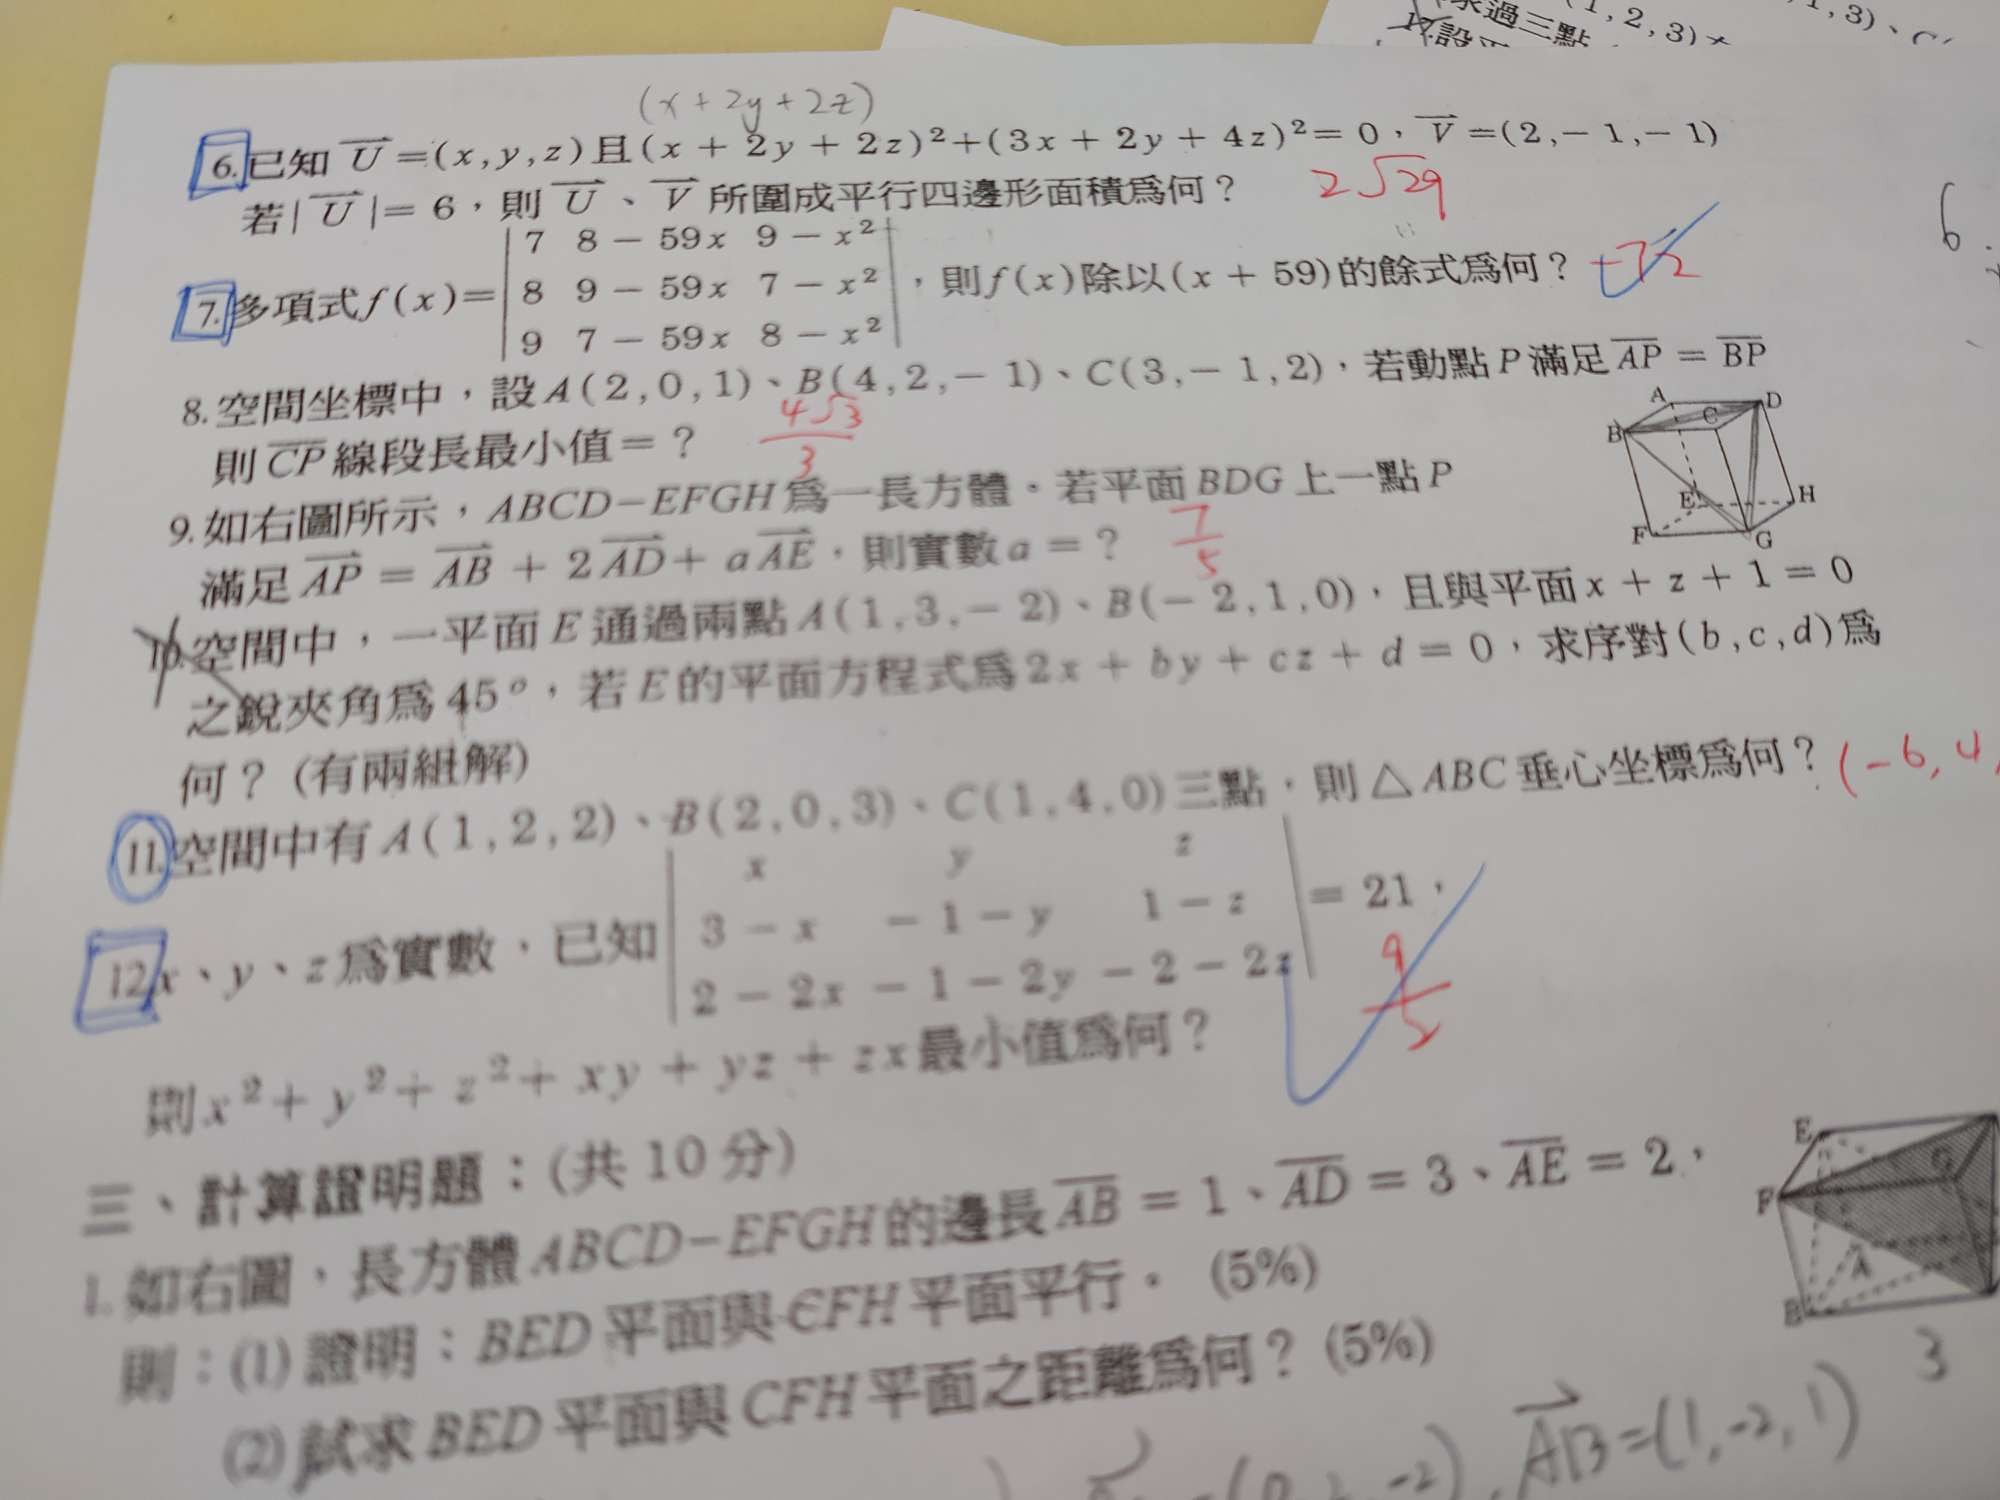 求過三點
(1,2,3)
1,3)、C(
17.設平
(x+2y+2z)
6.已知 U=(x,y,z)且(x+2y+2z)²+(3x+2y+4z)²=0,V=(2,-1,-1)
若|U|=6,則U、V所圍成平行四邊形面積爲何? 2√29
7.多項式f(x)=|7 8-59x 9-x²
8 9-59x 7-x²|,則f(x)除以(x+59)的餘式爲何?
9 7-59x 8-x²
8.空間坐標中,設A(2,0,1)、B(4,2,-1)、C(3,-1,2),若動點P滿足AP=BP
則CP線段長最小值=? 4√3/3
9.如右圖所示,ABCD-EFGH爲一長方體。若平面BDG上一點P
滿足AP=AB+2AD+aAE,則實數a=? 7/5
A D B C E H F G
10.空間中,一平面E通過兩點A(1,3,-2)、B(-2,1,0),且與平面x+z+1=0
之銳夾角爲45°,若E的平面方程式爲2x+by+cz+d=0,求序對(b,c,d)爲
何?(有兩組解)
11.空間中有A(1,2,2)、B(2,0,3)、C(1,4,0)三點,則△ABC垂心坐標爲何? (-6,4,
12.x、y、z爲實數,已知|x y z
3-x -1-y 1-z|=21,
2-2x -1-2y -2-2z
則x²+y²+z²+xy+yz+zx最小值爲何?
三、計算證明題:(共10分)
1.如右圖,長方體ABCD-EFGH的邊長AB=1、AD=3、AE=2,
則:(1)證明:BED平面與CFH平面平行。(5%)
(2)試求BED平面與CFH平面之距離爲何?(5%)
E F G A B
3
-2), AB=(1,-2,1)
6